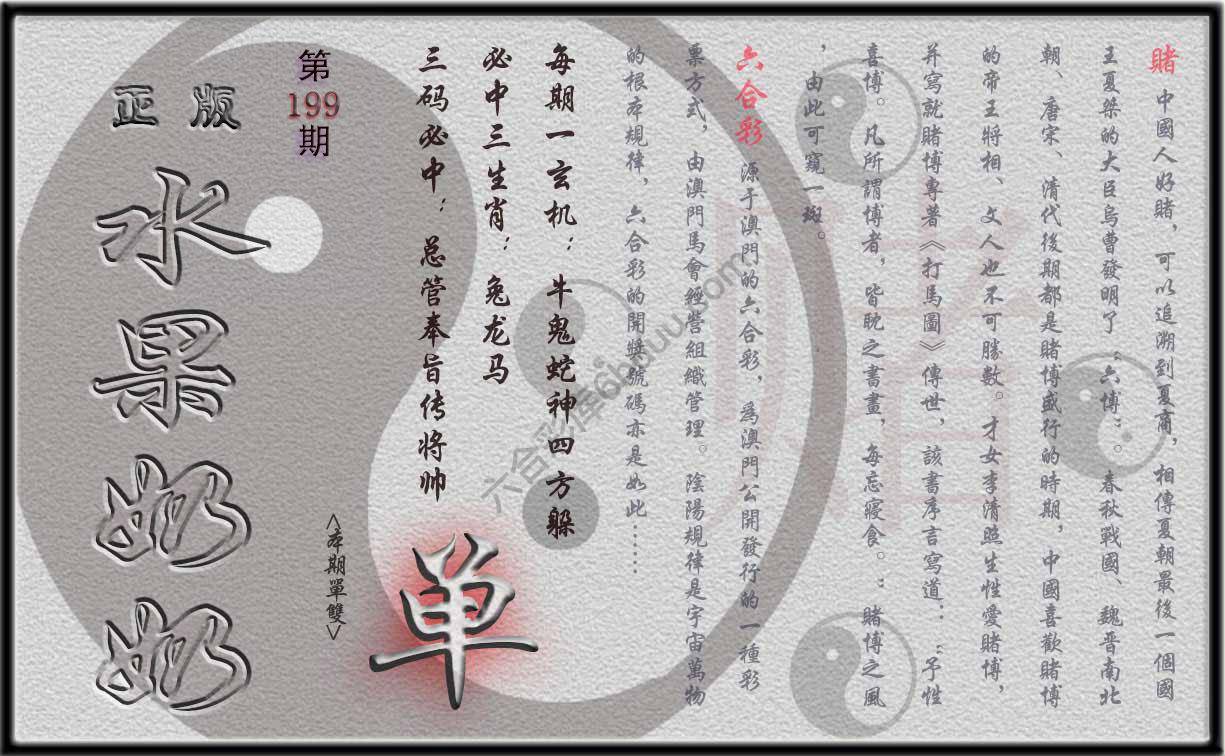 賭 中國人好賭，可以追溯到夏商，相傳夏朝最後一個國
王夏桀的大臣烏曹發明了“六博”。春秋戰國、魏晋南北
朝、唐宋、清代後期都是賭博盛行的時期，中國喜歡賭博
的帝王將相、文人也不可勝數。才女李清照生性愛賭博，
并寫就賭博專著《打馬圖》傳世，該書序言寫道：“予性
喜博。凡所謂博者，皆耽之晝畫，每忘寢食。：賭博之風
，由此可窺一斑。
六合彩 源于澳門的六合彩，為澳門公開發行的一種彩
票方式，由澳門馬會經營組織管理。陰陽規律是宇宙萬物
的根本規律，六合彩的開獎號碼亦是如此……
每期一玄机：牛鬼蛇神四方躲
必中三生肖：兔龙马
三码必中：总管奉旨传将帅
单
<本期單雙>
第
199
期
正版
水果奶奶
六合彩库6hduu.com